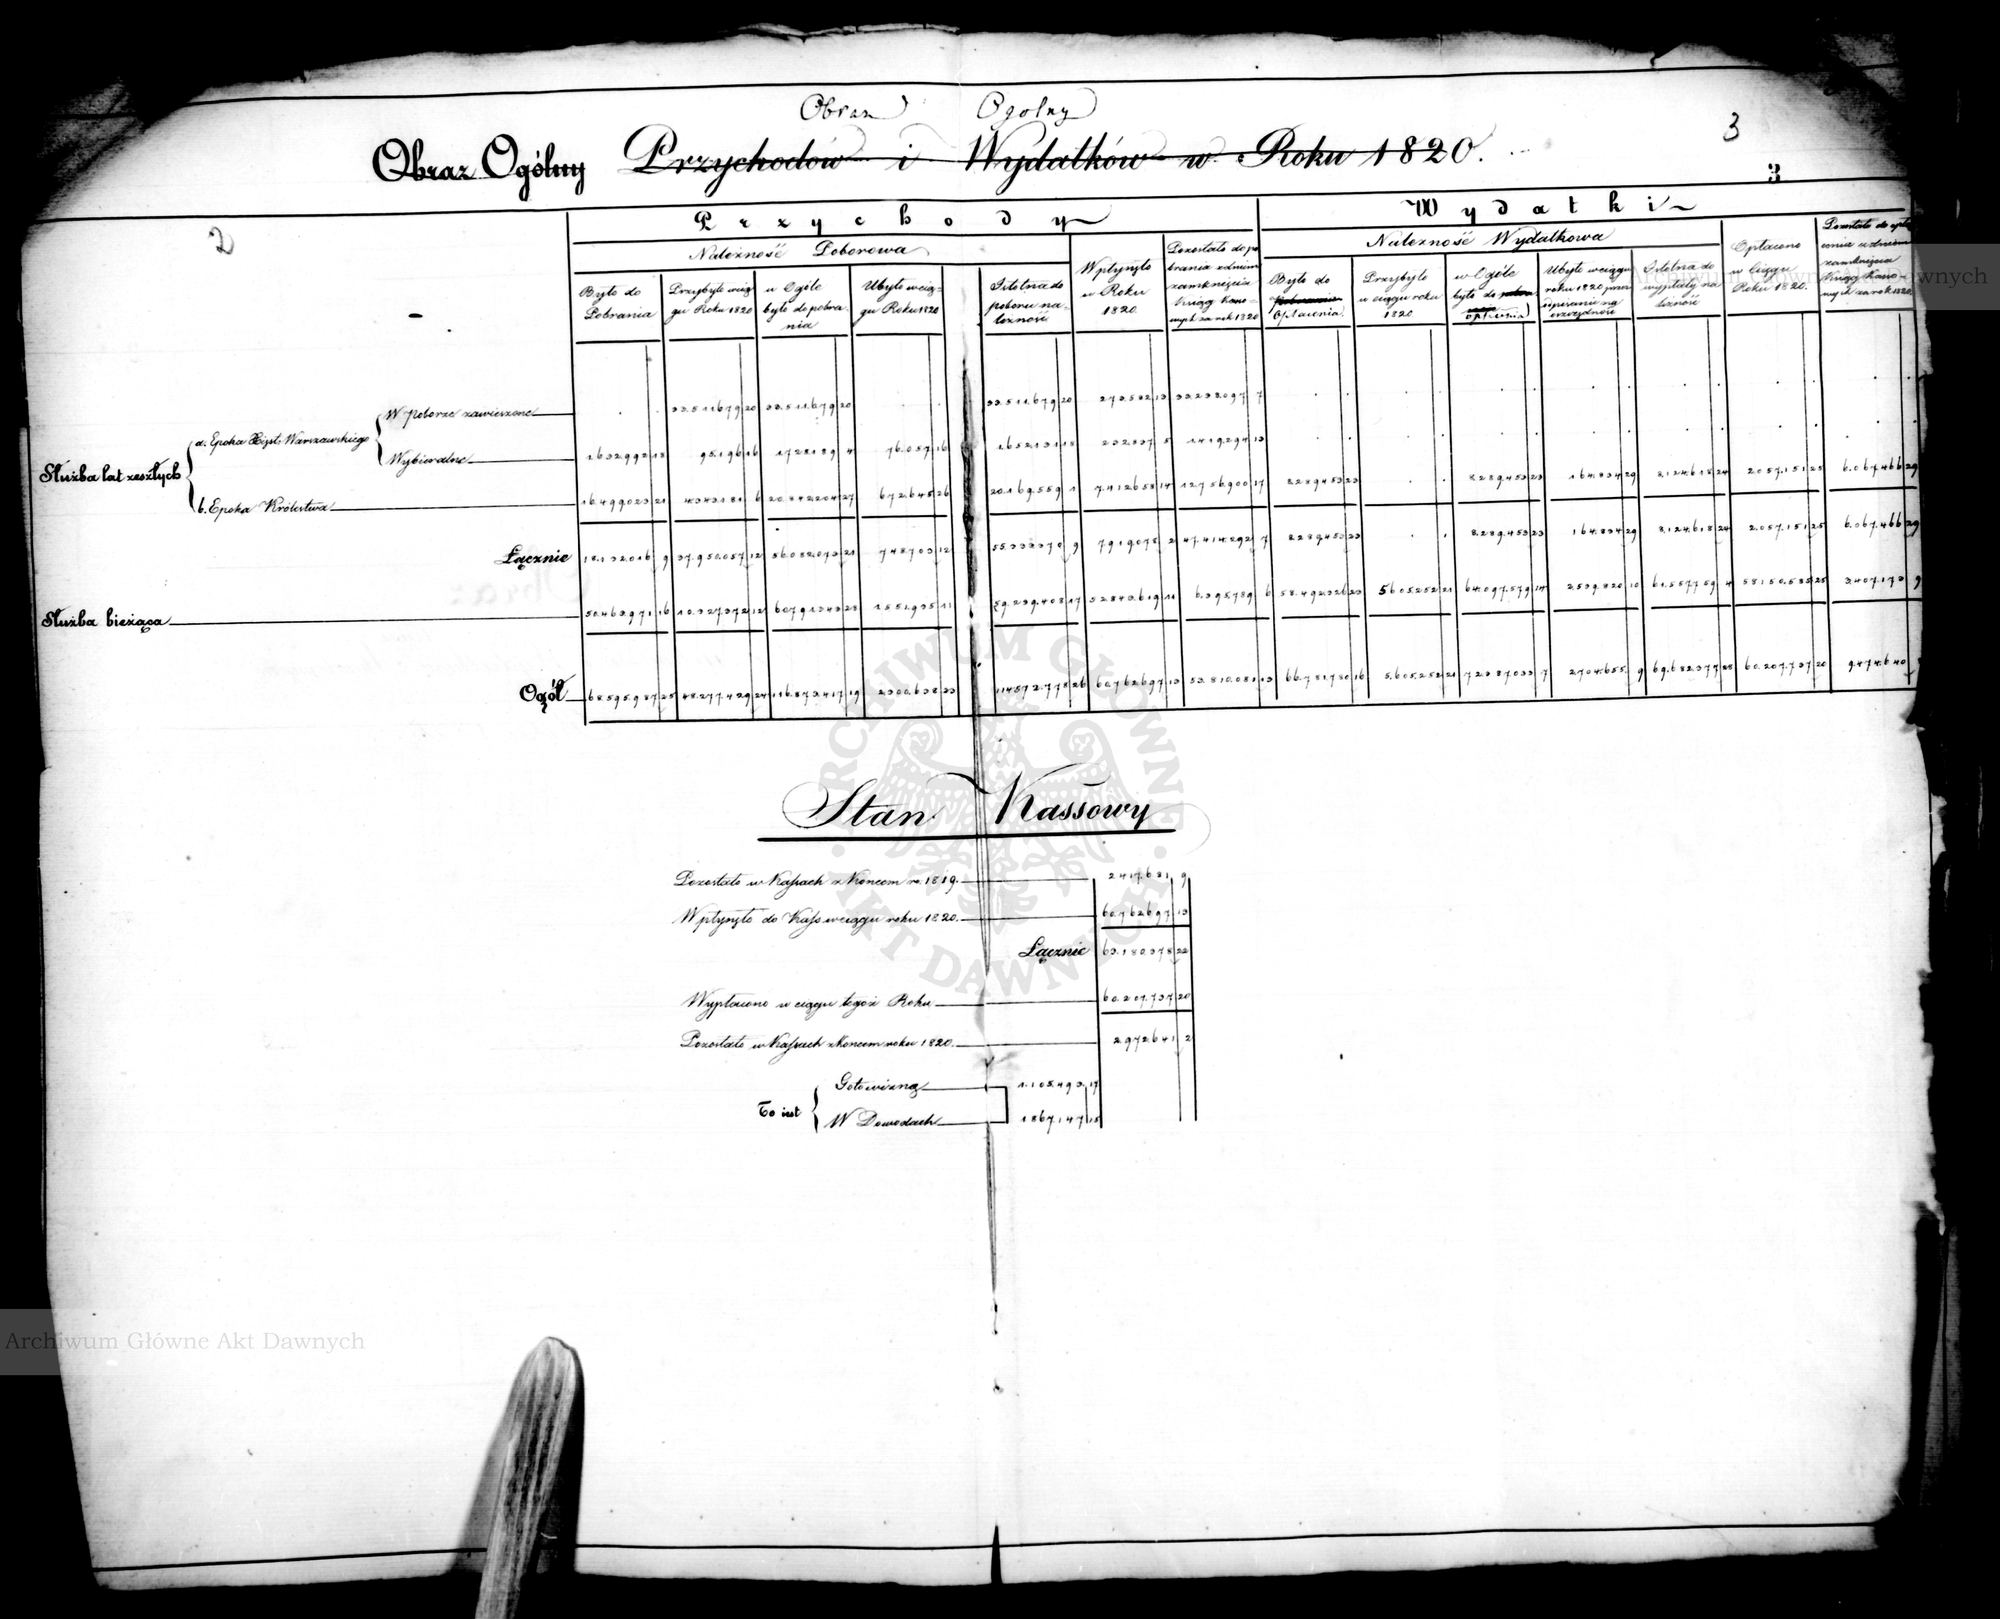 Obraz Ogolny
Obraz Ogólny Przychodów i Wydatków w Roku 1820.
3
3
2
Przychody
Wydatki
Należność Poborowa
Było do Pobrania
Przybyło w ciągu Roku 1820
w Ogóle było do pobrania
Ubyło w ciągu Roku 1820
Istotna do poboru należność
Wpłynęło w Roku 1820.
Pozostało do pobrania z dniem zamknięcia Xsiąg Kassowych za rok 1820
Należność Wydatkowa
Było do Opłacenia
Przybyło w ciągu roku 1820
w Ogóle było do opłacenia
Ubyło w ciągu roku 1820 przez odpisanie na oszczędność
Istotna do wypłaty należność
Opłacono w Ciągu Roku 1820.
Pozostało do opłacenia z dniem zamknięcia Xsiąg Kassowych za rok 1820.
Służba lat zeszłych
a. Epoka Xięst. Warszawskiego
W poborze zawieszone . . 33.511.679 20 33.511.679 20 . . 33.511.679 20 273.582 13 33.238.097 7
Wybieralne 1.632.992 18 95.196 16 1.728.189 4 76.057 16 1.652.131 18 232.837 5 1.419.294 13
b. Epoka Królestwa 16.499.023 21 4.343.181 6 20.842.204 27 672.645 26 20.169.559 1 7.412.658 14 12.756.900 17 8.289.453 23 . . 8.289.453 23 164.834 29 8.124.618 24 2.057.151 25 6.067.466 29
Łącznie 18.132.016 9 37.950.057 12 56.082.073 21 748.703 12 55.333.370 9 7.919.078 2 47.414.292 7 8.289.453 23 . . 8.289.453 23 164.834 29 8.124.618 24 2.057.151 25 6.067.466 29
Służba bieżąca 50.463.971 16 10.327.372 12 60.791.343 28 1.551.935 11 59.239.408 17 52.843.619 11 6.395.789 6 58.492.326 23 5.605.252 21 64.097.579 14 2.539.820 10 61.557.759 4 58.150.585 25 3.407.173 9
Ogół 68.595.987 25 48.277.429 24 116.873.417 19 2.300.638 23 114.572.778 26 60.762.697 13 53.810.081 13 66.781.780 16 5.605.252 21 72.387.033 7 2.704.655 9 69.682.377 28 60.207.737 20 9.474.640
Stan Kassowy
Pozostało w Kassach z Końcem ro. 1819. 2.417.681 9
Wpłynęło do Kass w ciągu roku 1820. 60.762.697 13
Łącznie 63.180.378 22
Wypłacono w ciągu tegoż Roku 60.207.737 20
Pozostało w Kassach z Koncem roku 1820. 2.972.641 2
To iest
Gotowizną 1.105.493 17
W Dowodach 1.867.147 15
ARCHIWUM GŁÓWNE AKT DAWNYCH
Archiwum Główne Akt Dawnych
Archiwum Główne Akt Dawnych